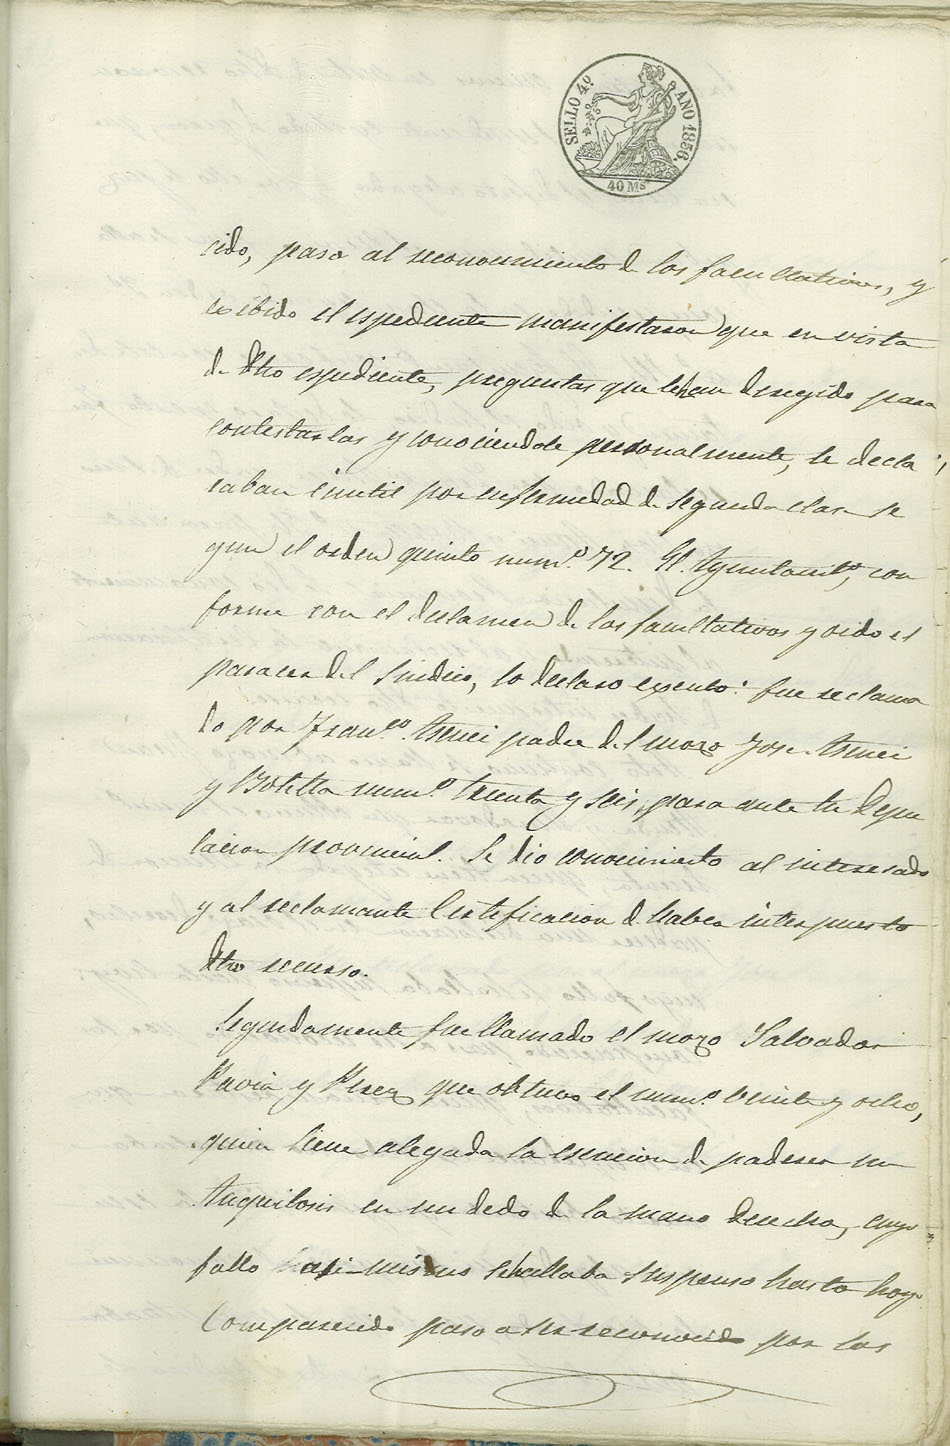 SELLO 4º AÑO 1856.
40 Ms
cido, paso al reconocimiento de los facultativos, y
exibido el espediente manifestaron que en vista
de dho espediente, preguntas que le han dirigido para
contestarlas y conociendole personalmente, le decla
raban inutil por enfermedad de segunda clase se
gun el orden quinto numº 72. El Ayuntamtº, con
forme con el dictamen de los facultativos y oido el
parecer del Sindico, lo declaro esento: fue reclama
do por Francº. padre del mozo Jose
y Botella numº. treinta y seis, para ante la Dipu
tacion provincial. Se dio conocimiento al interesado
y al reclamante Certificacion de haber interpuesto
dho recurso.
Segundamente fue llamado el mozo Salvador
Pavia y Perez que obtuvo el numº. veinte y ocho,
quien tiene alegada la esencion de padecer un
Anquilosis en un dedo de la mano derecha, cuyo
fallo asi-mismo se hallaba suspenso hasta hoy.
Comparecido paso a ser reconocido por los